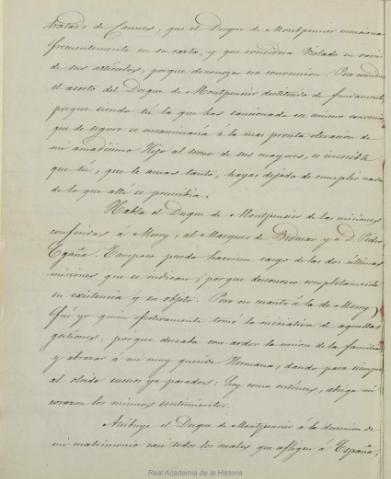 tratado de Cannes, que el Duque de Montpensier menciona
frecuentemente en su carta, y que considera violado en varios
de sus artículos; porque desconozco esa convencion. Pero
el aserto del Duque de Montpensier destituido de fundamento,
porque siendo tú la que has sancionado ese mismo convenio,
que de seguro se encaminaria á la mas pronta elevacion de
mi amadisimo Hijo al trono de sus mayores, es increible
que tú, que le amas tanto, hayas dejado de cumplir nada
de lo que allí se prescribia.
Habla el Duque de Montpensier de las misiones
confiadas á Meny, al Marques de Bedmar y á D. Pedro
Egaña. Tampoco puedo hacerme cargo de las dos últimas
misiones que se indican; porque desconozco completamente
su existencia y su objeto. Pero en cuanto á la de Meny
fuí yo quien efectivamente tomó la iniciativa de aquellas
gestiones; porque deseaba con ardor la union de la familia
y abrazar á mi muy querida Hermana, dando para siempre
al olvido sucesos ya pasados; hoy como entónces, abriga mi
corazon los mismos sentimientos.
Atribuye el Duque de Montpensier á la
mi matrimonio casi todos los males que afligen á España;
Real Academia de la Historia